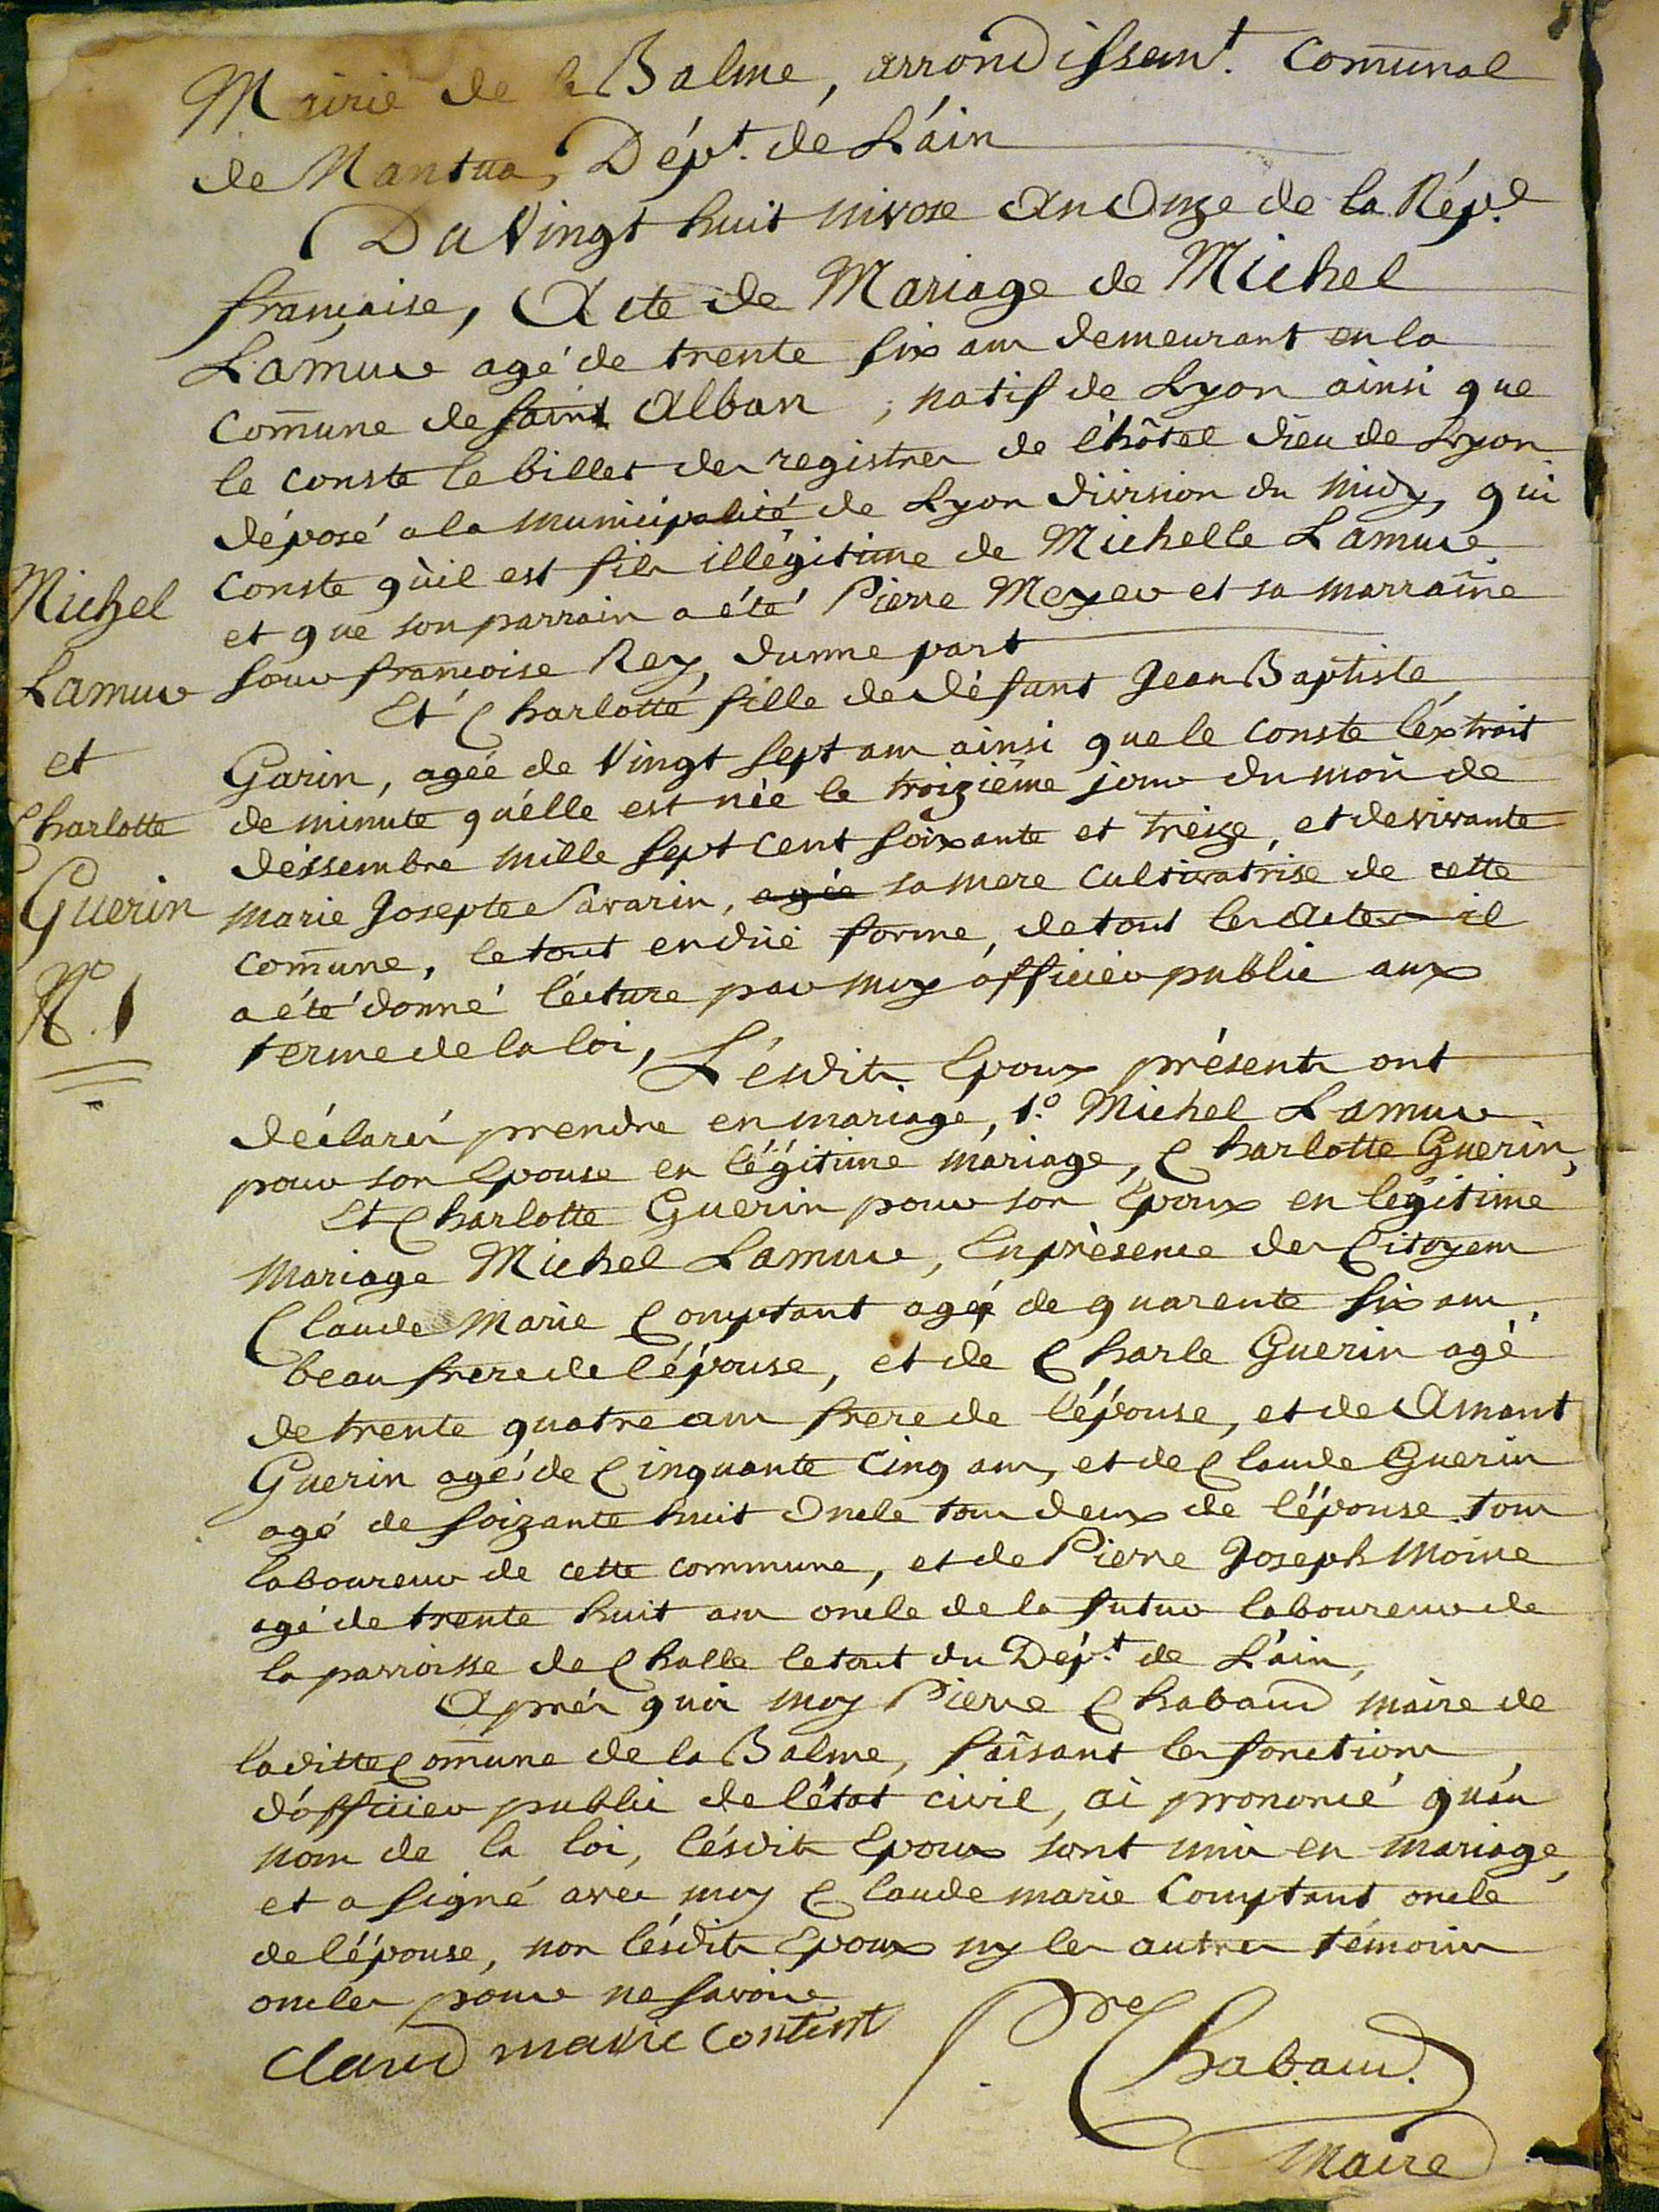 Mairie de la Balme, arrondissemt. Comunal
de Nantua, Dépt. de L'ain
Du Vingt huit nivose an Onze de la Répe
française, Acte de Mariage de Michel
Lamure agé de trente six ans demeurant en la
Comune de saint Alban, natif de Lyon ainsi que
le conste le billet des registres de l'hôtel dieu de Lyon
déposé a la municipalité de Lyon division du midy, qui
conste qu'il est fils illégitime de Michelle Lamure
et que son parrain a été Pierre Meyer et sa marraine
soeur françoise Rey, dunne part
Et Charlotte fille de défunt Jean Baptiste
Garin, agée de Vingt sept ans ainsi que le conste l'extrait
de minute qu'elle est née le troizième jour du mois de
déssembre mille sept cent soixante et treize, et de vivante
marie Josepte Savarin, agée sa mere cultivatrise de cette
comune, le tout en düe forme, de tous les actes il
a été donné lécture par moy officier public aux
terme de la loi, Lésdits Epoux présents ont
déclarés prendre en mariage, 1.° Michel Lamure
pour son Epouse en légitime mariage, Charlotte Guerin,
Et Charlotte Guerin pour son Epoux en legitime
Mariage Michel Lamure, En présence des Citoyens
Claude Marie Comptant agé de quarente six ans,
beau frere de l'épouse, et de Charle Guerin agé
de trente quatre ans frere de l'épouse, et de Amant
Guerin agé de Cinquante Cinq ans, et de Claude Guerin
agé de soizante huit Oncle tous deux de l'épouse tous
laboureur de cette commune, et de Pierre Joseph Moine
agé de trente huit ans oncle de la futur laboureur de
la parroisse de Challe le tout du Dépt. de L'ain,
Aprés quoi moy Pierre Chabaud maire de
laditte Comune de la Balme, faisant les fonctions
d'officier public de l'état civil, ai prononcé qu'au
nom de la loi, lésdits Epoux sont unis en mariage,
et a signé avec moy Claude marie Comptant oncle
de l'épouse, non lésdits Epoux ny les autres témoins
oncles pour ne savoir
Claud marie Contint
Pre Chabaud.
Maire
Michel
Lamure
et
Charlotte
Guerin
N° 1